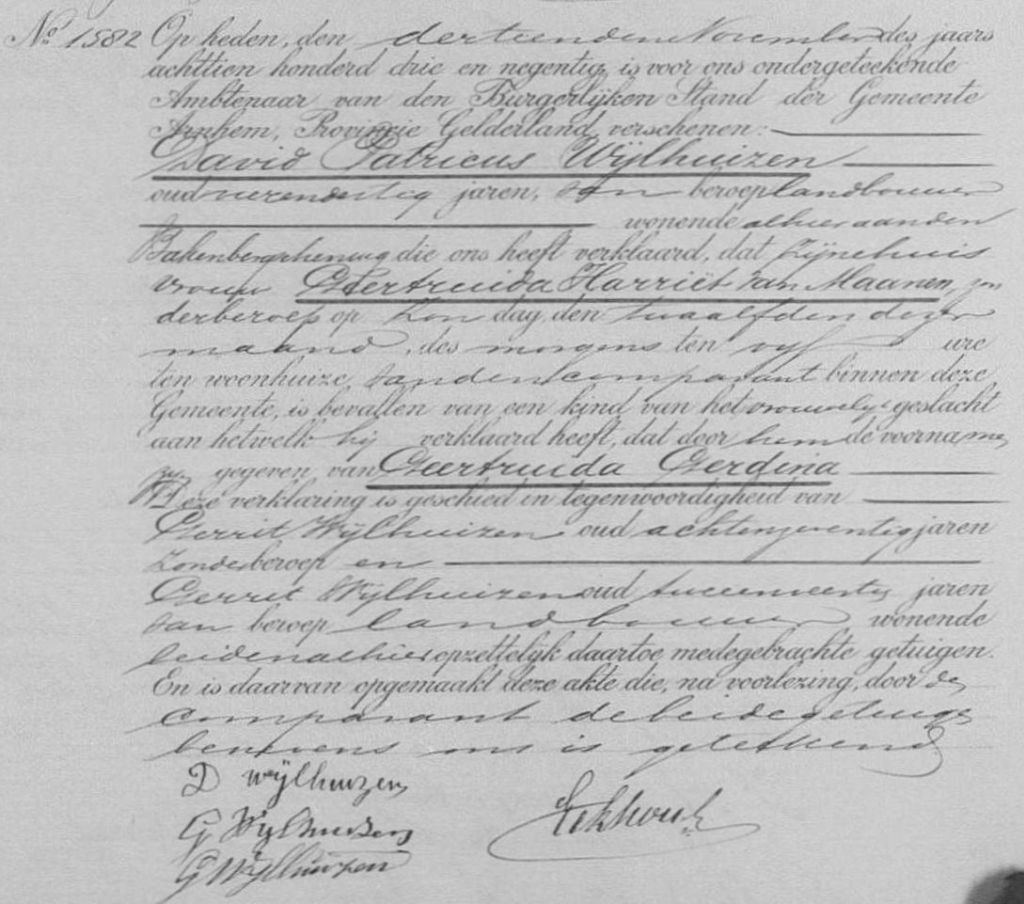 No 1582 Op heden, den dertienden November des jaars
achttien honderd drie en negentig, is voor ons ondergeteekende
Ambtenaar van den Burgerlijken Stand der Gemeente
Arnhem, Provincie Gelderland, verschenen:
David Patricus Wijlhuizen
oud vierendertig jaren, van beroep landbouwer
wonende alhier aan den
Bakenbergscheweg die ons heeft verklaard, dat zijne huis
vrouw Geertruida Harriët van Maanen, zon
der beroep op Zon dag, den twaalfden dezer
maand, des morgens ten vijf ure
ten woonhuize, van den comparant binnen deze
Gemeente, is bevallen van een kind van het vrouwelijk geslacht
aan hetwelk hij verklaard heeft, dat door hem de voorname
zijn gegeven van Geertruida Gerdina
Deze verklaring is geschied in tegenwoordigheid van
Gerrit Wijlhuizen oud achtenzeventig jaren
zonder beroep en
Gerrit Wijlhuizen oud tweeenveertig jaren
van beroep landbouwer wonende
beiden alhier opzettelijk daartoe medegebrachte getuigen.
En is daarvan opgemaakt deze akte die, na voorlezing, door de
comparant de beide getuige
benevens ons is geteekend
D Wijlhuizen
G Wijlhuizen
G Wijlhuizen